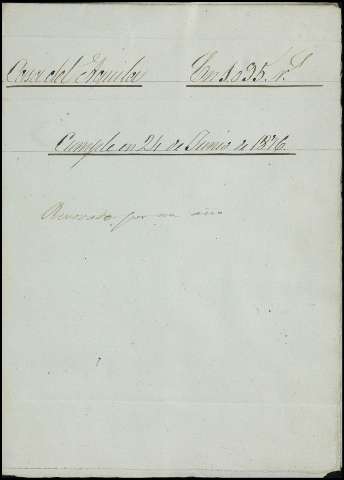 Casa del Aguila En 1.035. r.s
Cumple en 24 de Junio de 1876.
Renovada por un año